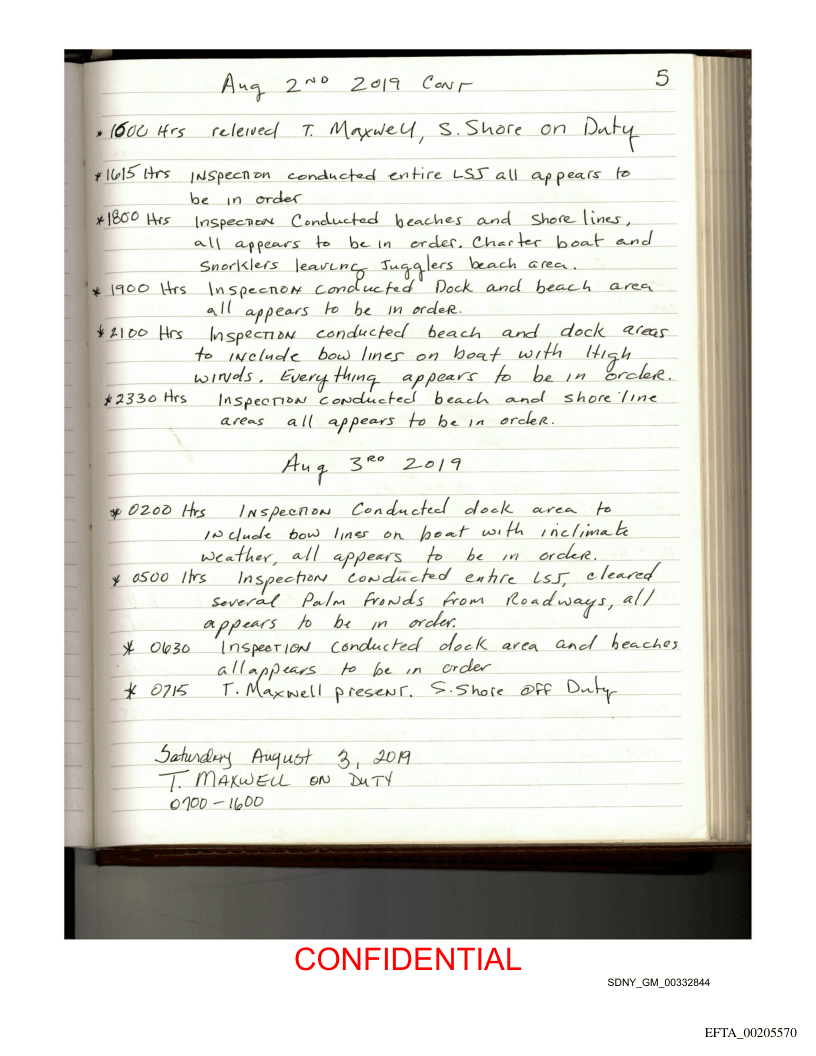 Aug 2ND 2019 CONT
5
* 1600 Hrs releived T. Maxwell, S. Shore on Duty
* 1615 Hrs INSpection conducted entire LSJ all appears to
be in order
* 1800 Hrs Inspection Conducted beaches and shore lines,
all appears to be in order. Charter boat and
Snorklers leaving Jugglers beach area.
* 1900 Hrs Inspection conducted Dock and beach area
all appears to be in order.
* 2100 Hrs Inspection conducted beach and dock areas
to include bow lines on boat with High
winds. Everything appears to be in order.
* 2330 Hrs Inspection conducted beach and shore line
areas all appears to be in order.
Aug 3RD 2019
* 0200 Hrs Inspection Conducted dock area to
include bow lines on boat with inclimate
weather, all appears to be in order.
* 0500 Hrs Inspection conducted entire LSJ, cleared
several Palm fronds from Roadways, all
appears to be in order.
* 0630 Inspection conducted dock area and beaches
all appears to be in order
* 0715 T. Maxwell present. S. Shore OFF Duty
Saturday August 3, 2019
T. MAXWELL ON DUTY
0700 - 1600
CONFIDENTIAL
SDNY_GM_00332844
EFTA_00205570